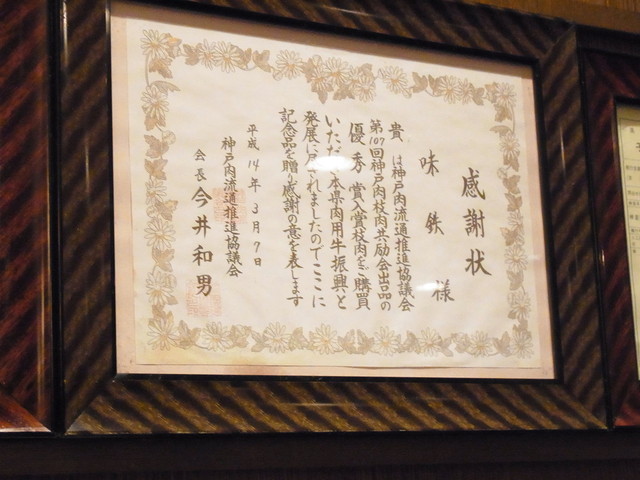 感謝状
味鉄 様
貴 は神戸肉流通推進協議会
第107回神戸肉枝肉共励会出品の
優秀賞入賞枝肉をご購買
いただき本県肉用牛振興と
発展に尽されましたのでここに
記念品を贈り感謝の意を表します
平成14年3月7日
神戸肉流通推進協議会
会長 今井和男